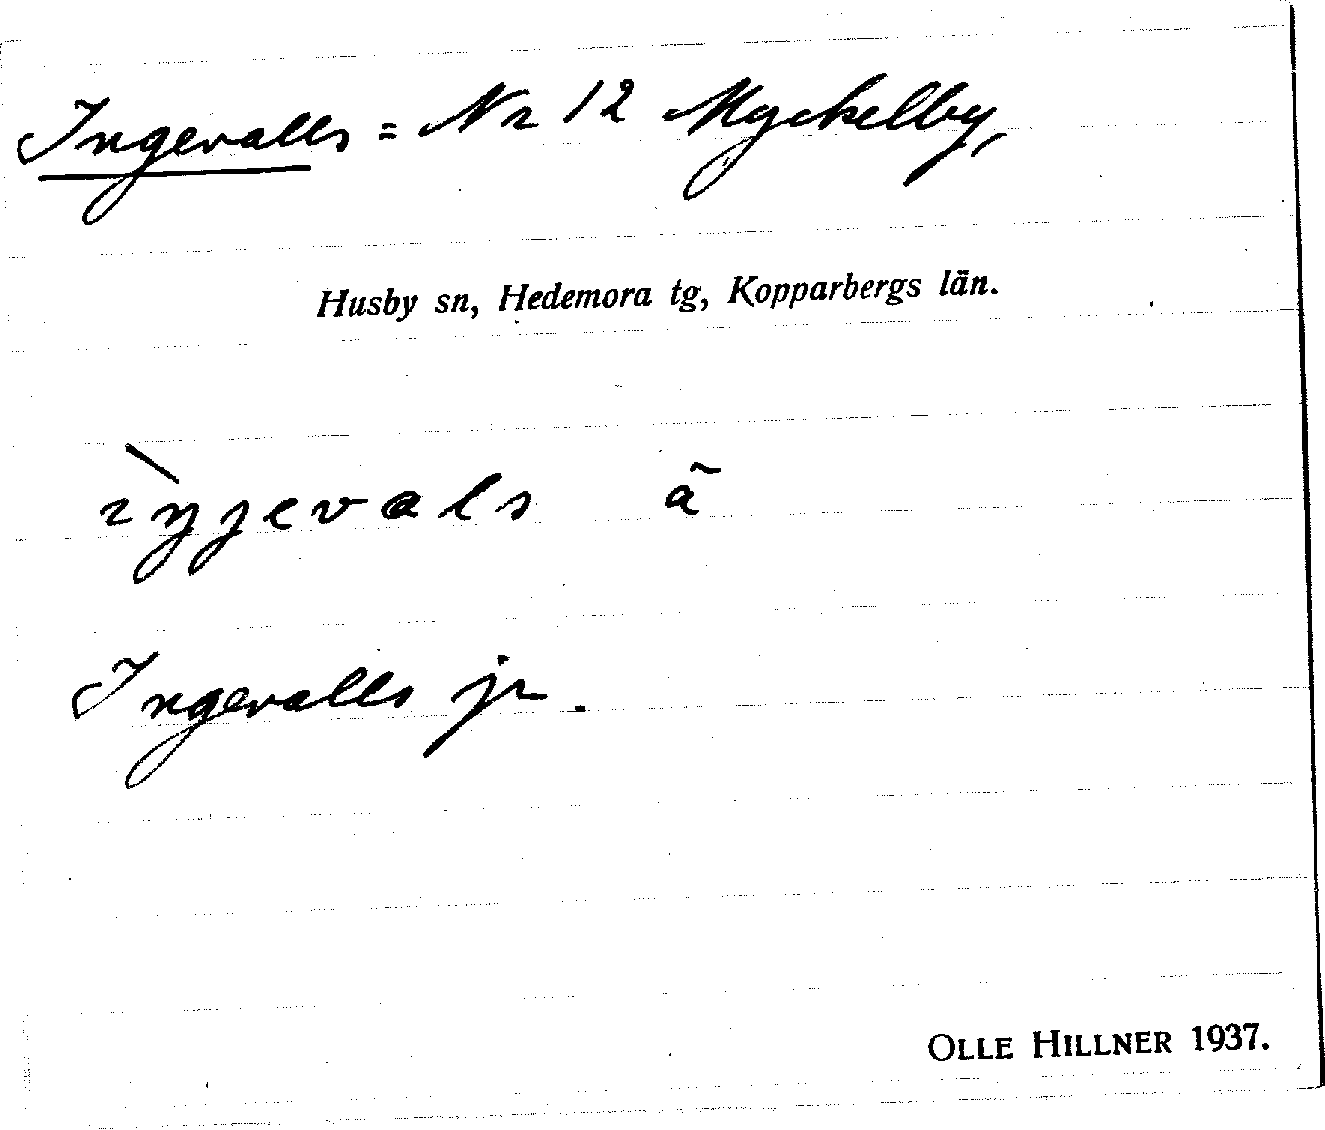 Ingevalls = Nr 12 Myckelby,
Husby sn, Hedemora tg, Kopparbergs län.
ıŋjevals ã
Ingevalls jr.
OLLE HILLNER 1937.